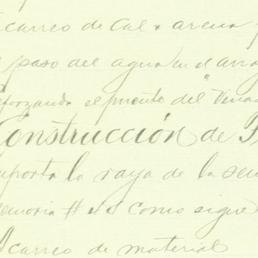 carreo de cal & arena
paso del agua en el arro
eforzando el puente del "Vena
Construcción de P
mporta la raya de la sem
emoria # como sigue
Acarreo de material